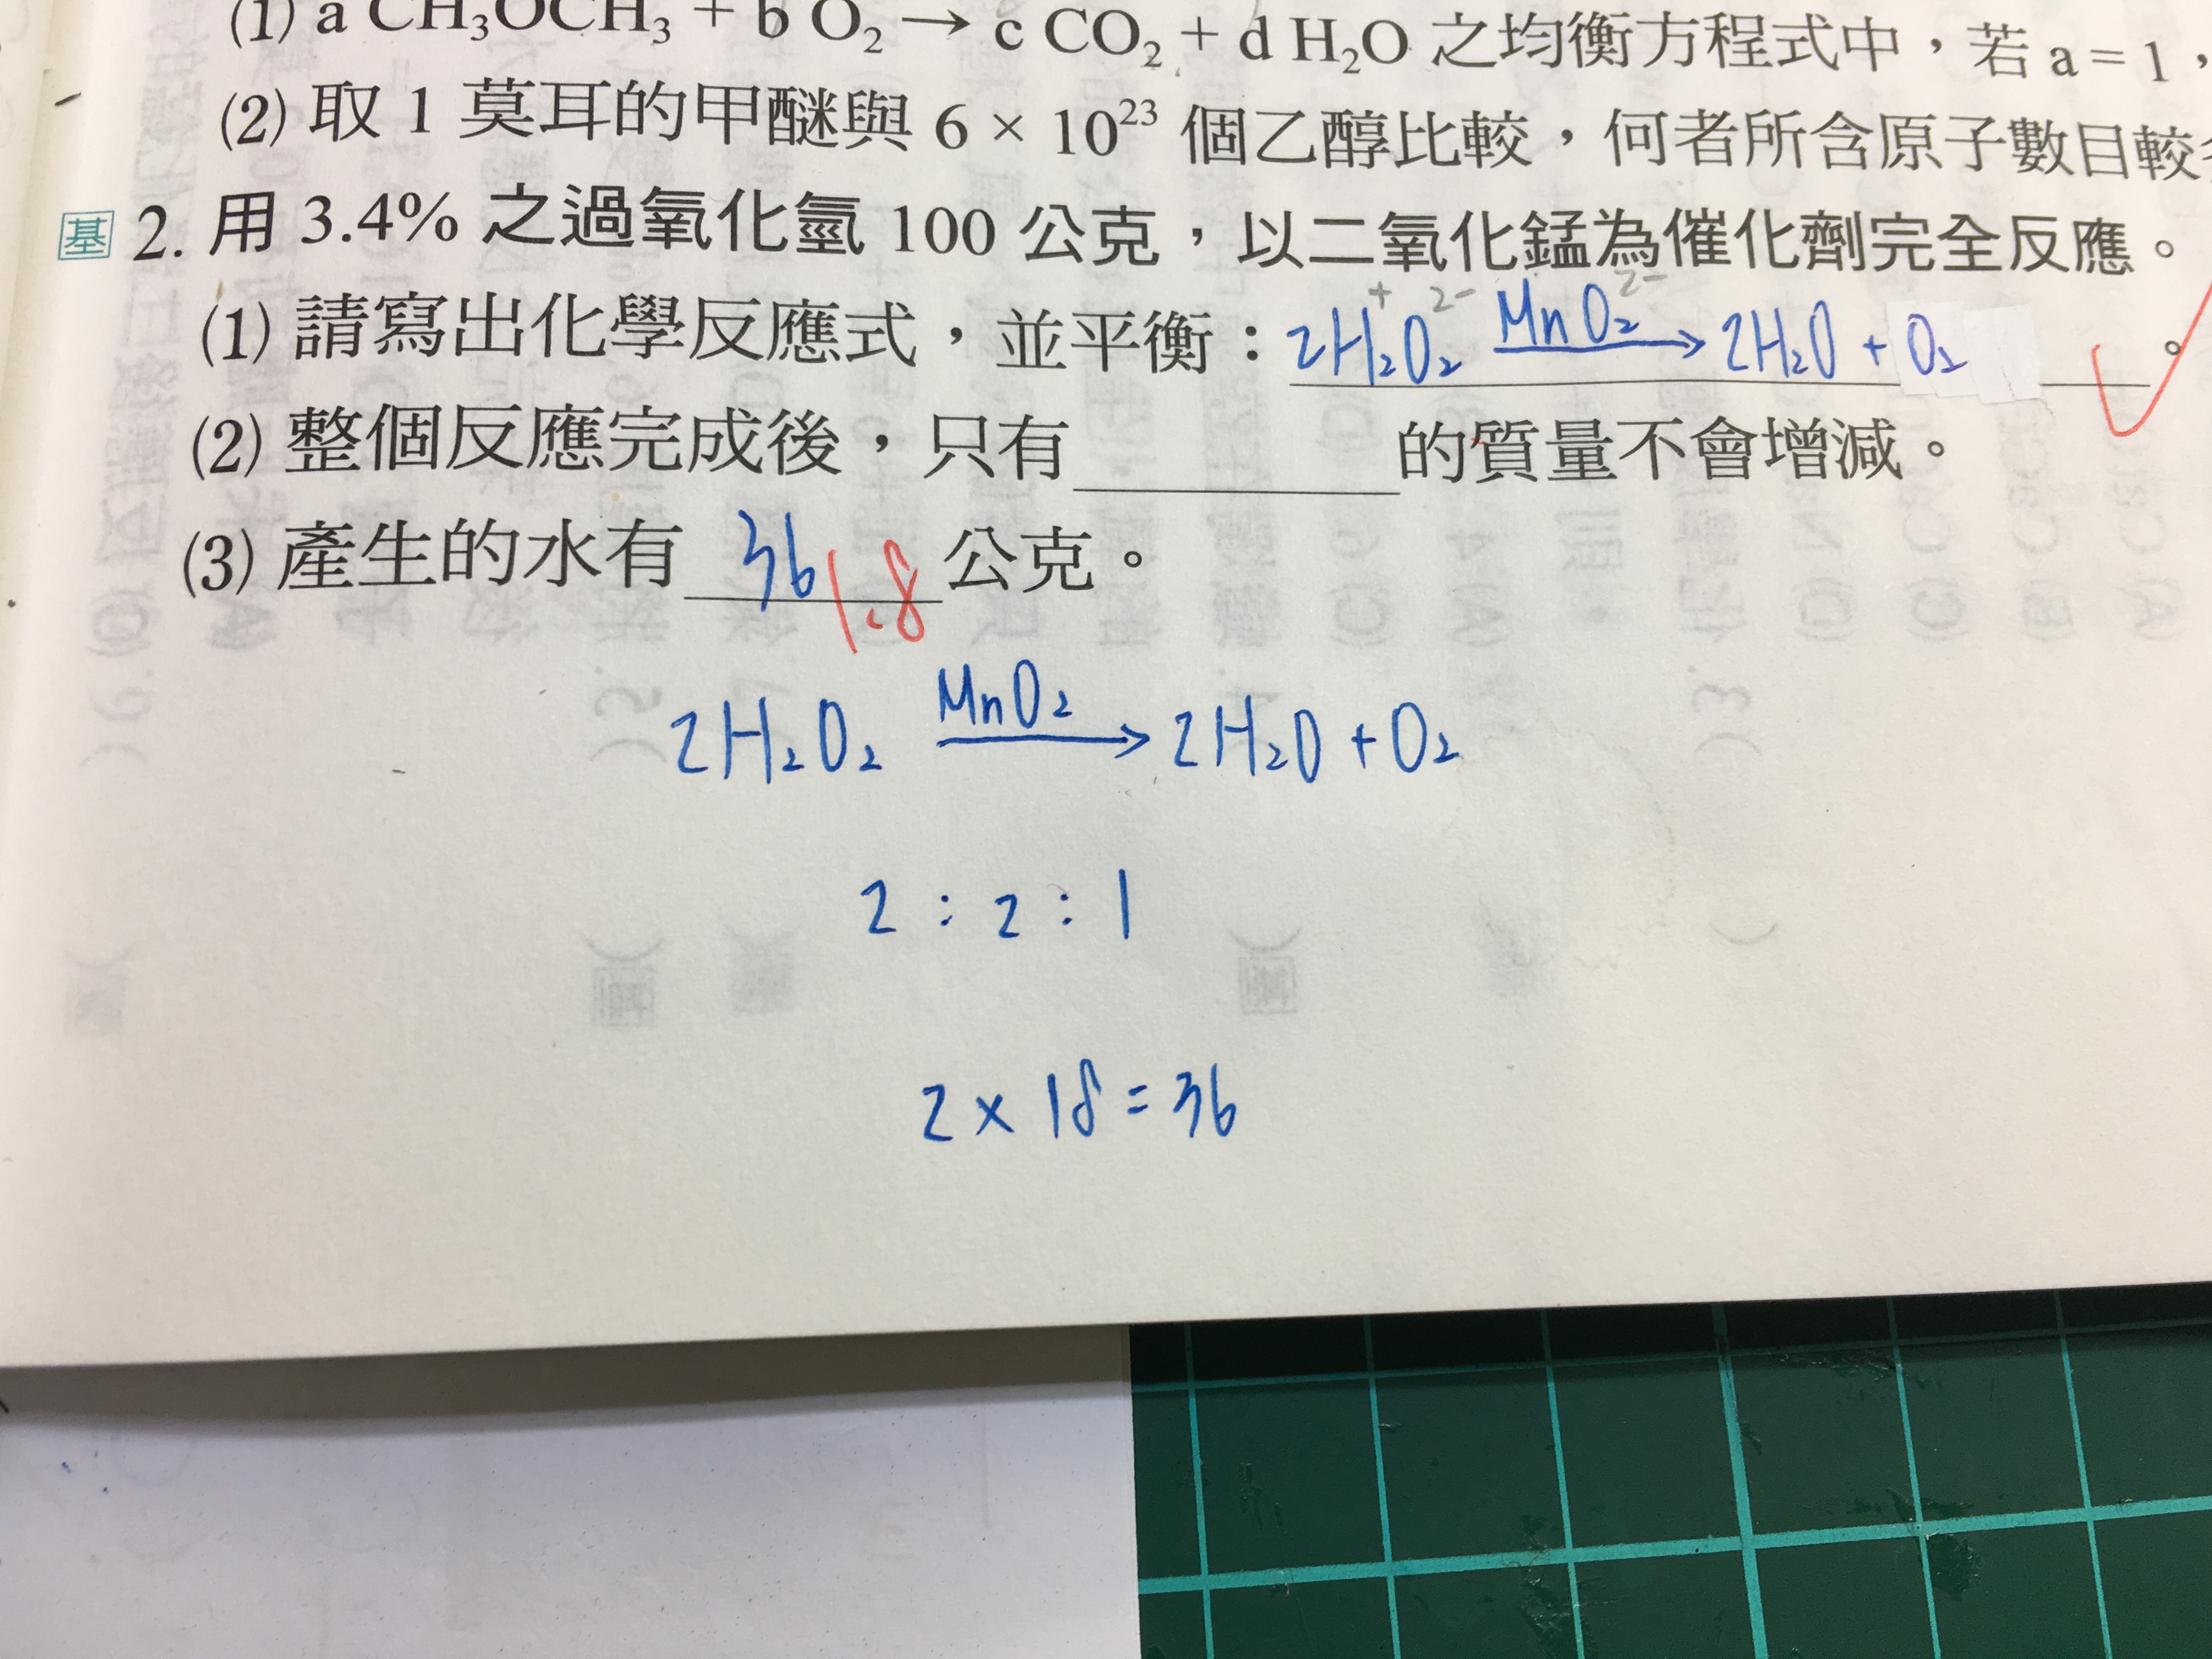 (1) a CH₃OCH₃ + b O₂ → c CO₂ + d H₂O 之均衡方程式中，若 a = 1，
(2) 取 1 莫耳的甲醚與 6 × 10²³ 個乙醇比較，何者所含原子數目較
基 2. 用 3.4% 之過氧化氫 100 公克，以二氧化錳為催化劑完全反應。
(1) 請寫出化學反應式，並平衡：2H₂⁺O₂²⁻ MnO₂²⁻→ 2H₂O + O₂ 。
(2) 整個反應完成後，只有 的質量不會增減。
(3) 產生的水有 36 1.8 公克。
2H₂O₂ MnO₂→ 2H₂O + O₂
2 : 2 : 1
2 × 18 = 36